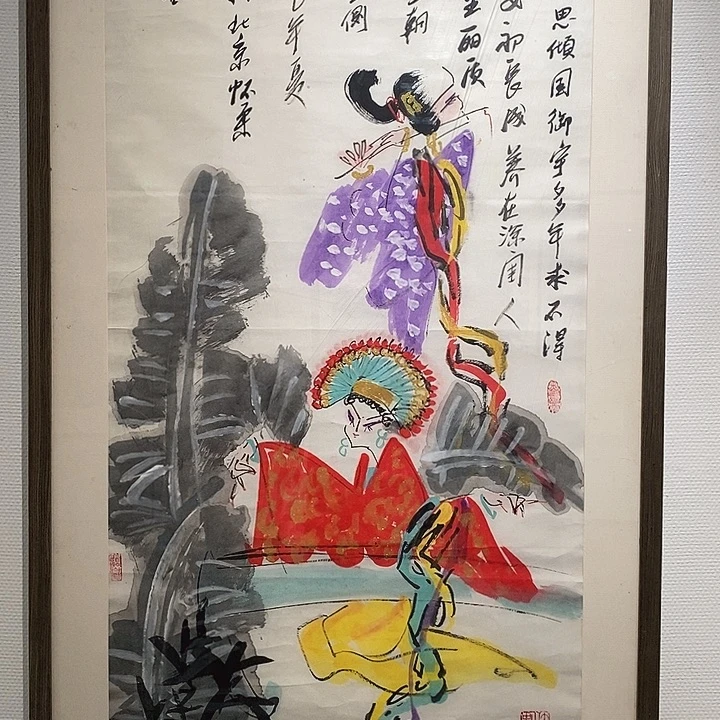 思倾国御宇多年求不得
女初長成养在深闺人
生丽质
朝
侧
年夏
北京怀柔